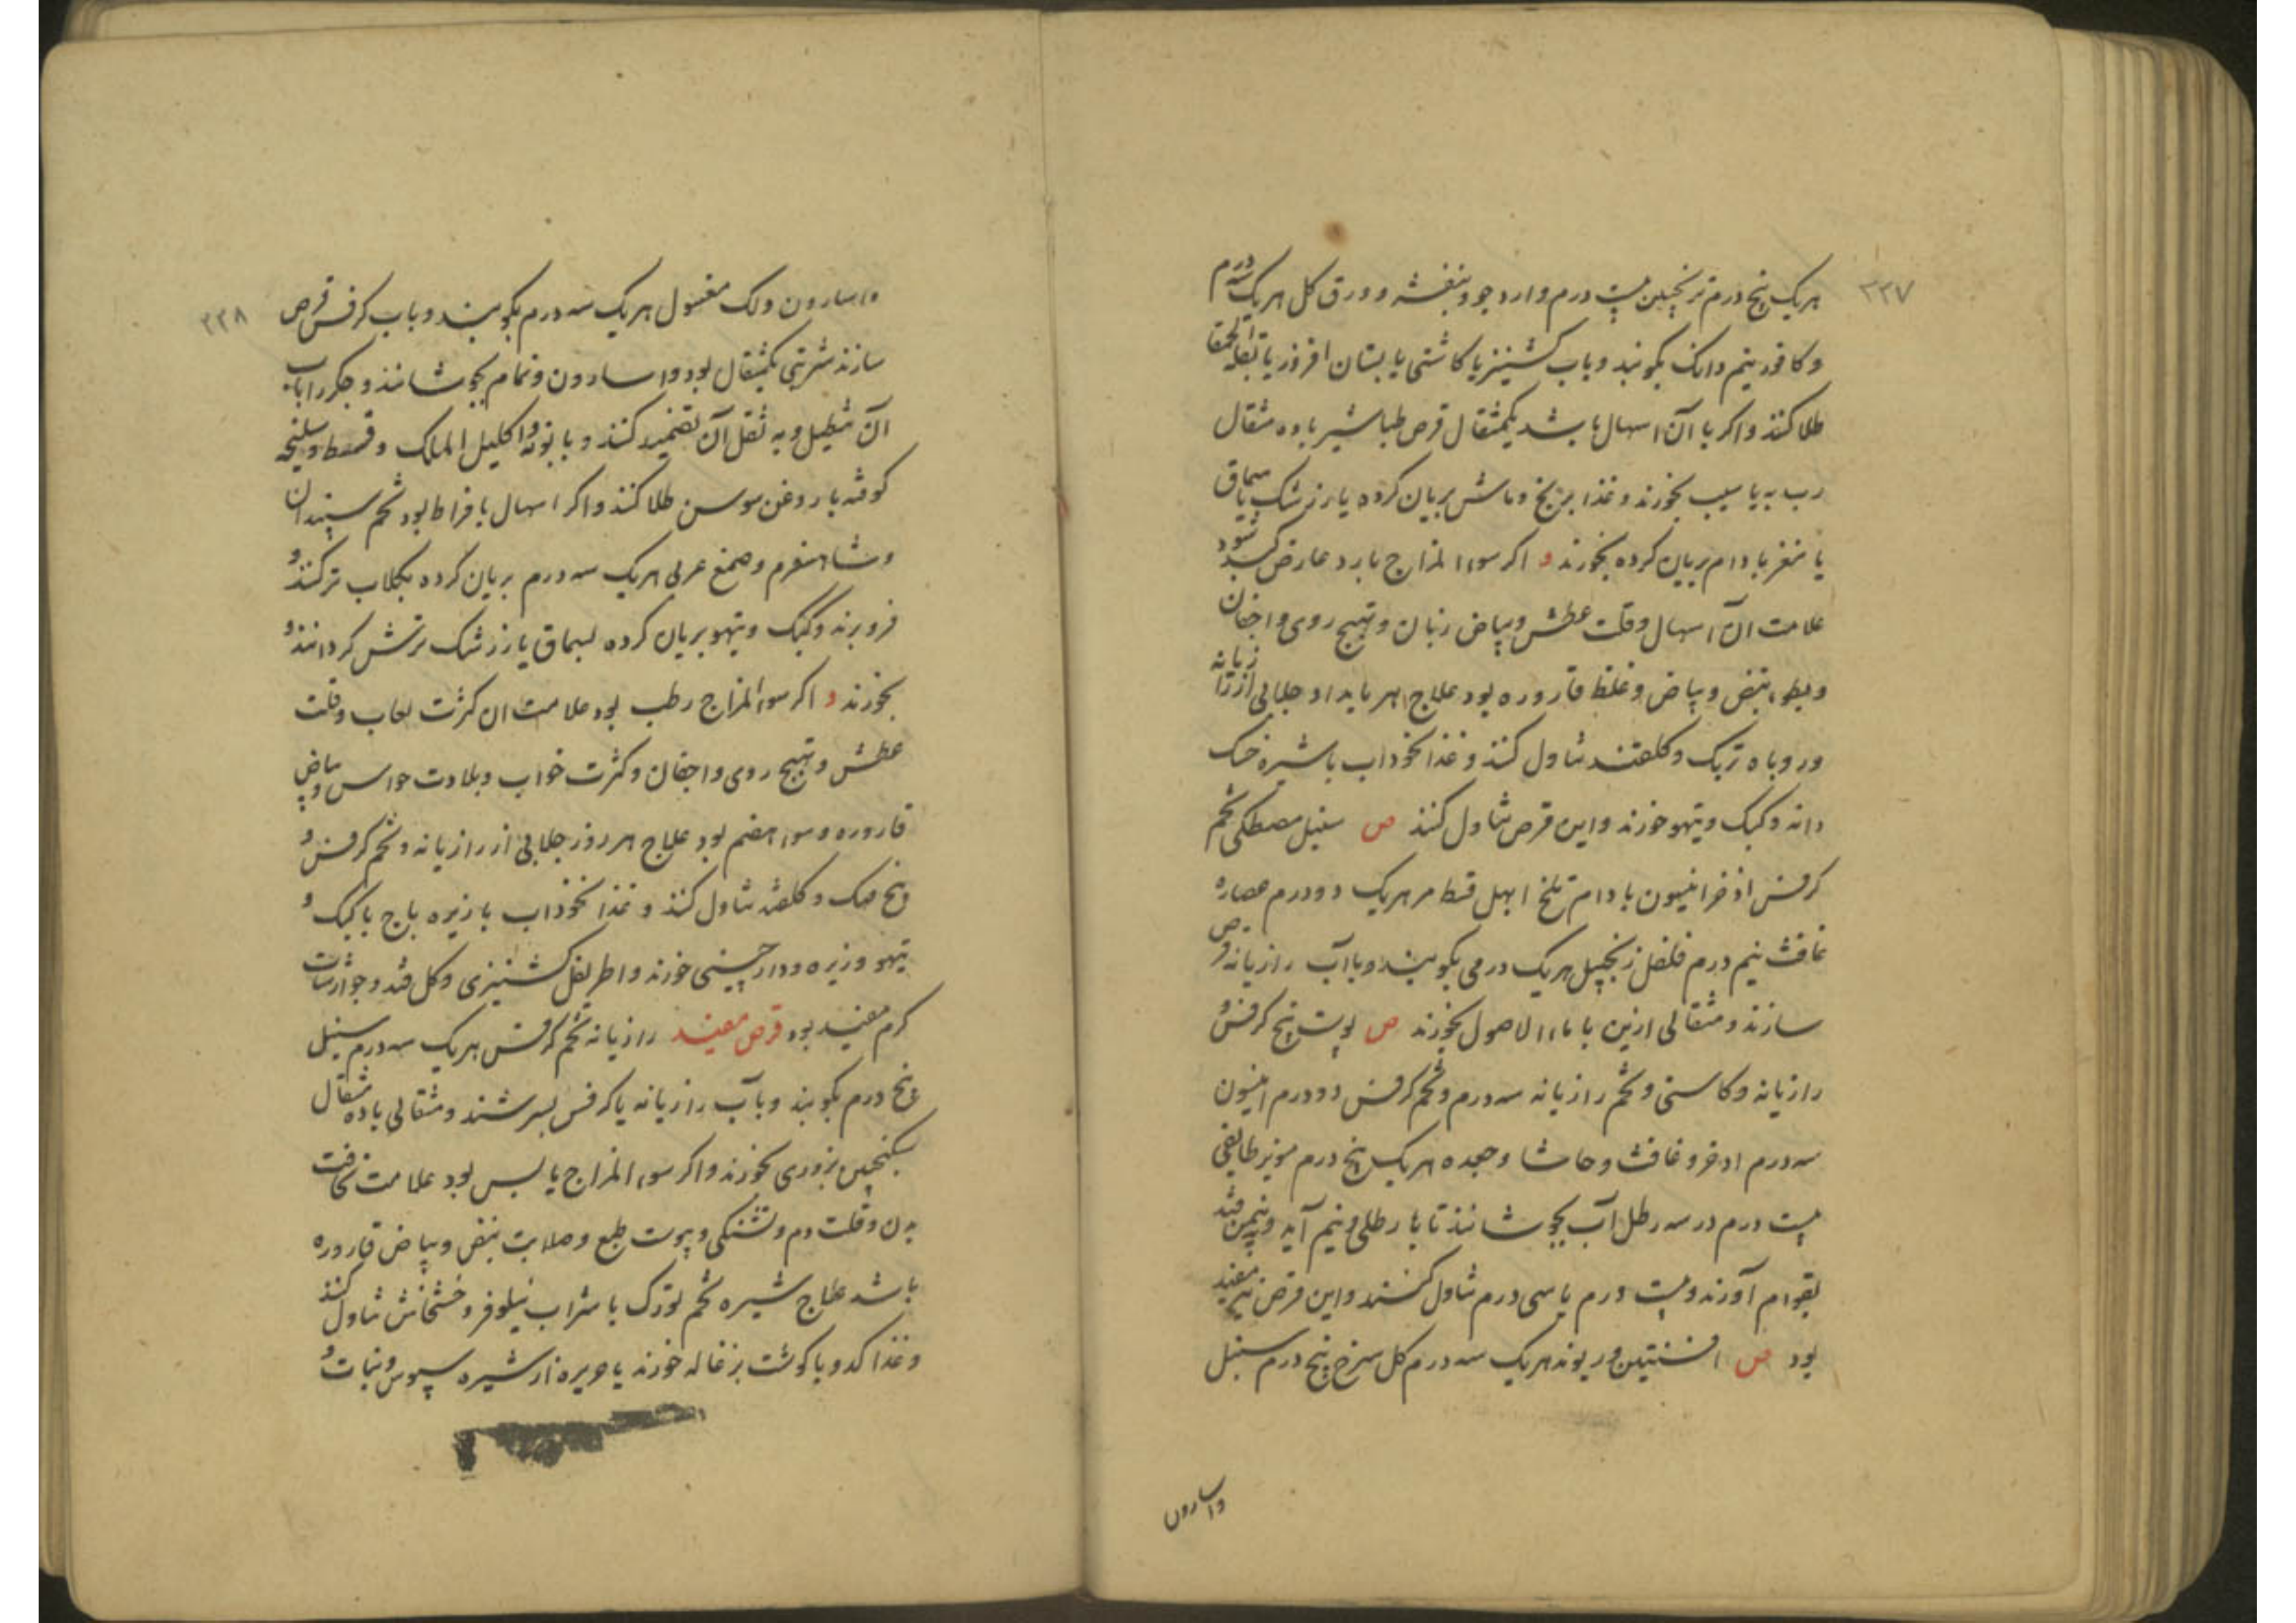 ۲۲۷
هریک پنج درم ترنجبین بیست درم و ارد جو و بنفشه و ورق کل هریک سه درم
و کافور نیم دانک بکوبند و باب کشنیز یا کاشنی یا بستان افروز یا بقلة الحمقا
طلا کنند و اکر با آن اسهال باشد یکمثقال قرص طباشیر با ده مثقال
رب به یا سیب بخورند و غذا برنج و ماش بریان کرده یا زرشک یا سماق
یا مغز بادام بریان کرده بخورند و اکر سوء المزاج بارد عارض کبد شود
علامت آن اسهال و قلت عطش و بیاض زبان و تهیج روی و اجفان
و بطوء نبض و بیاض و غلظ قاروره بود علاج هر بامداد جلابی از رازیانه
و روباه تربک و کلقند تناول کنند و غذا نخوداب با شیره خسک
دانه و کبک و تیهو خورند و این قرص تناول کنند ص سنبل مصطکی تخم
کرفس اذخر انیسون بادام تلخ ابهل قسط مر هریک دو درم عصاره
غافث نیم درم فلفل زنجبیل هریک درمی بکوبند و با آب رازیانه قرص
سازند و مثقالی ازین با ماء الاصول بخورند ص پوست بیخ کرفس و
رازیانه و کاسنی و تخم رازیانه سه درم و تخم کرفس دو درم انیسون
سه درم اذخر و غافث و حاشا و جعده هریک پنج درم مویز طایفی
بیست درم در سه رطل آب بجوشانند تا با رطلی و نیم آید و بنیم من قند
بقوام آورند و بیست درم یا سی درم تناول کنند و این قرص نیز مفید
بود ص افسنتین و ریوند هریک سه درم کل سرخ پنج درم سنبل
واسارون
۲۲۸
و اسارون و لک مغسول هریک سه درم بکوبند و باب کرفس قرص
سازند شربتی یکمثقال بود و اسارون و نمام بجوشانند و جکر را باب
آن تنطیل و به ثقل آن تضمید کنند و بابونه و اکلیل الملک و قسط و سلیخه
کوفته با روغن سوسن طلا کنند و اکر اسهال بافراط بود تخم سپندان
و شاهسفرم و صمغ عربی هریک سه درم بریان کرده بکلاب تر کنند و
فرو برند و کبک و تیهو بریان کرده بسماق یا زرشک ترش کردانند و
بخورند و اکر سوء المزاج رطب بود علامت ان کثرت لعاب و قلت
عطش و تهیج روی و اجفان و کثرت خواب و بلادت حواس و بیاض
قاروره و سوء هضم بود علاج هر روز جلابی از رازیانه و تخم کرفس و
بیخ مهک و کلقند تناول کنند و غذا نخوداب با زیره باج با کبک و
تیهو و زیره و دارچینی خورند و اطریفل کشنیزی و کل قند و جوارشات
کرم مفید بود قرص مفید رازیانه تخم کرفس هریک سه درم سنبل
پنج درم بکوبند و با آب رازیانه یا کرفس بسرشند و مثقالی با ده مثقال
سکنجبین بزوری بخورند و اکر سوء المزاج یابس بود علامت نحافت
بدن و قلت دم و تشنکی و یبوست طبع و صلابت نبض و بیاض قاروره
باشد علاج شیره تخم تورک با شراب نیلوفر و خشخاش تناول کنند
و غذا کدو با کوشت بزغاله خورند یا حریره از شیره سپوس و نبات و